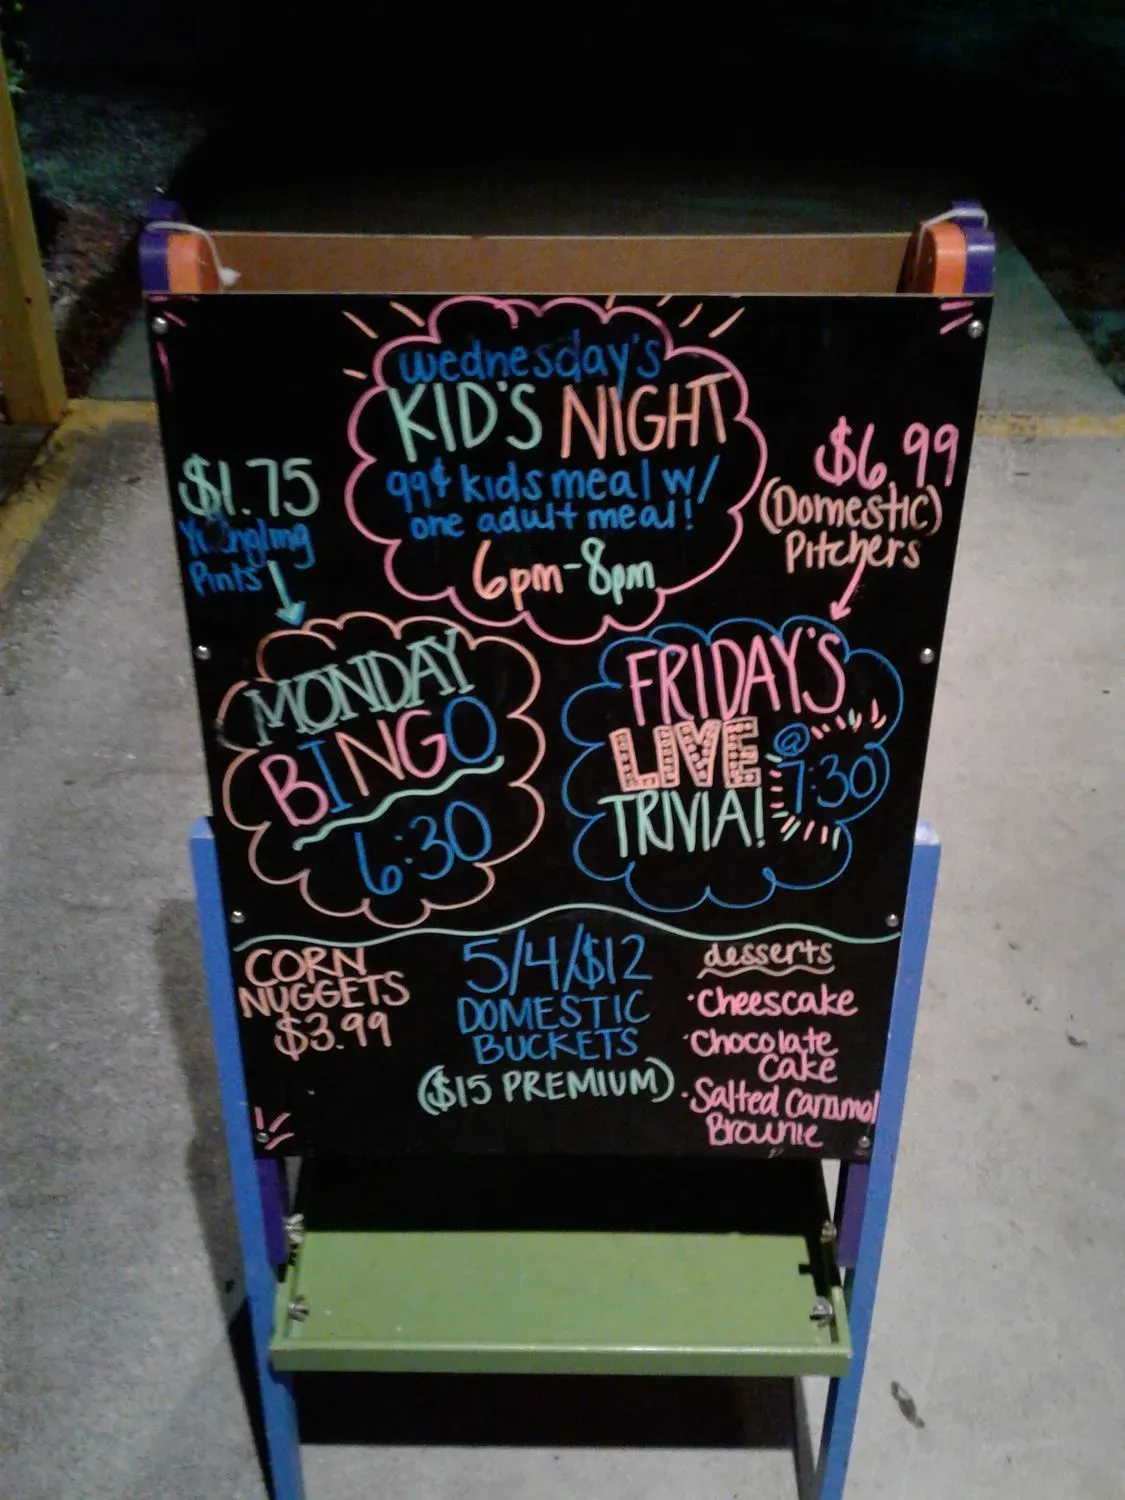 wednesday's
KID'S NIGHT
99¢ kids meal w/
one adult meal!
6pm-8pm
$1.75
Pints
$6.99
(Domestic)
Pitchers
MONDAY
BINGO
6:30
FRIDAY'S
LIVE @
TRIVIA! 7:30
CORN
NUGGETS
$3.99
5/4/$12
DOMESTIC
BUCKETS
($15 PREMIUM)
desserts
·Cheescake
·Chocolate
Cake
·Salted Caramel
Brownie